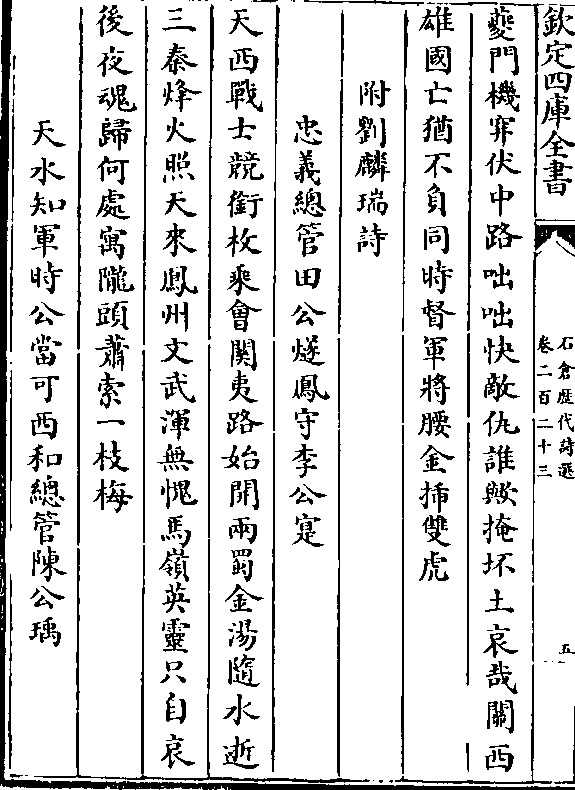 欽定四庫全書
石倉歷代詩選
卷二百二十三
五
夔門機穽伏中路咄咄快敵仇誰歟掩坏土哀哉關西
雄國亡猶不負同時督軍將腰金揷雙虎
附劉麟瑞詩
忠義總管田公燧鳳守李公寔
天西戰士競銜枚乘會関夷路始開兩蜀金湯隨水逝
三秦烽火照天來鳳州文武渾無愧馬嶺英靈只自哀
後夜魂歸何處寓隴頭蕭索一枝梅
天水知軍時公當可西和總管陳公瑀